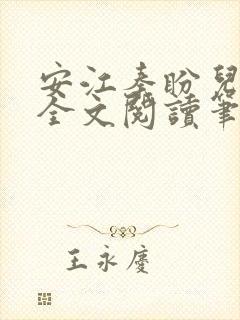 安江秦盼兒
全文閱讀筆
王永慶